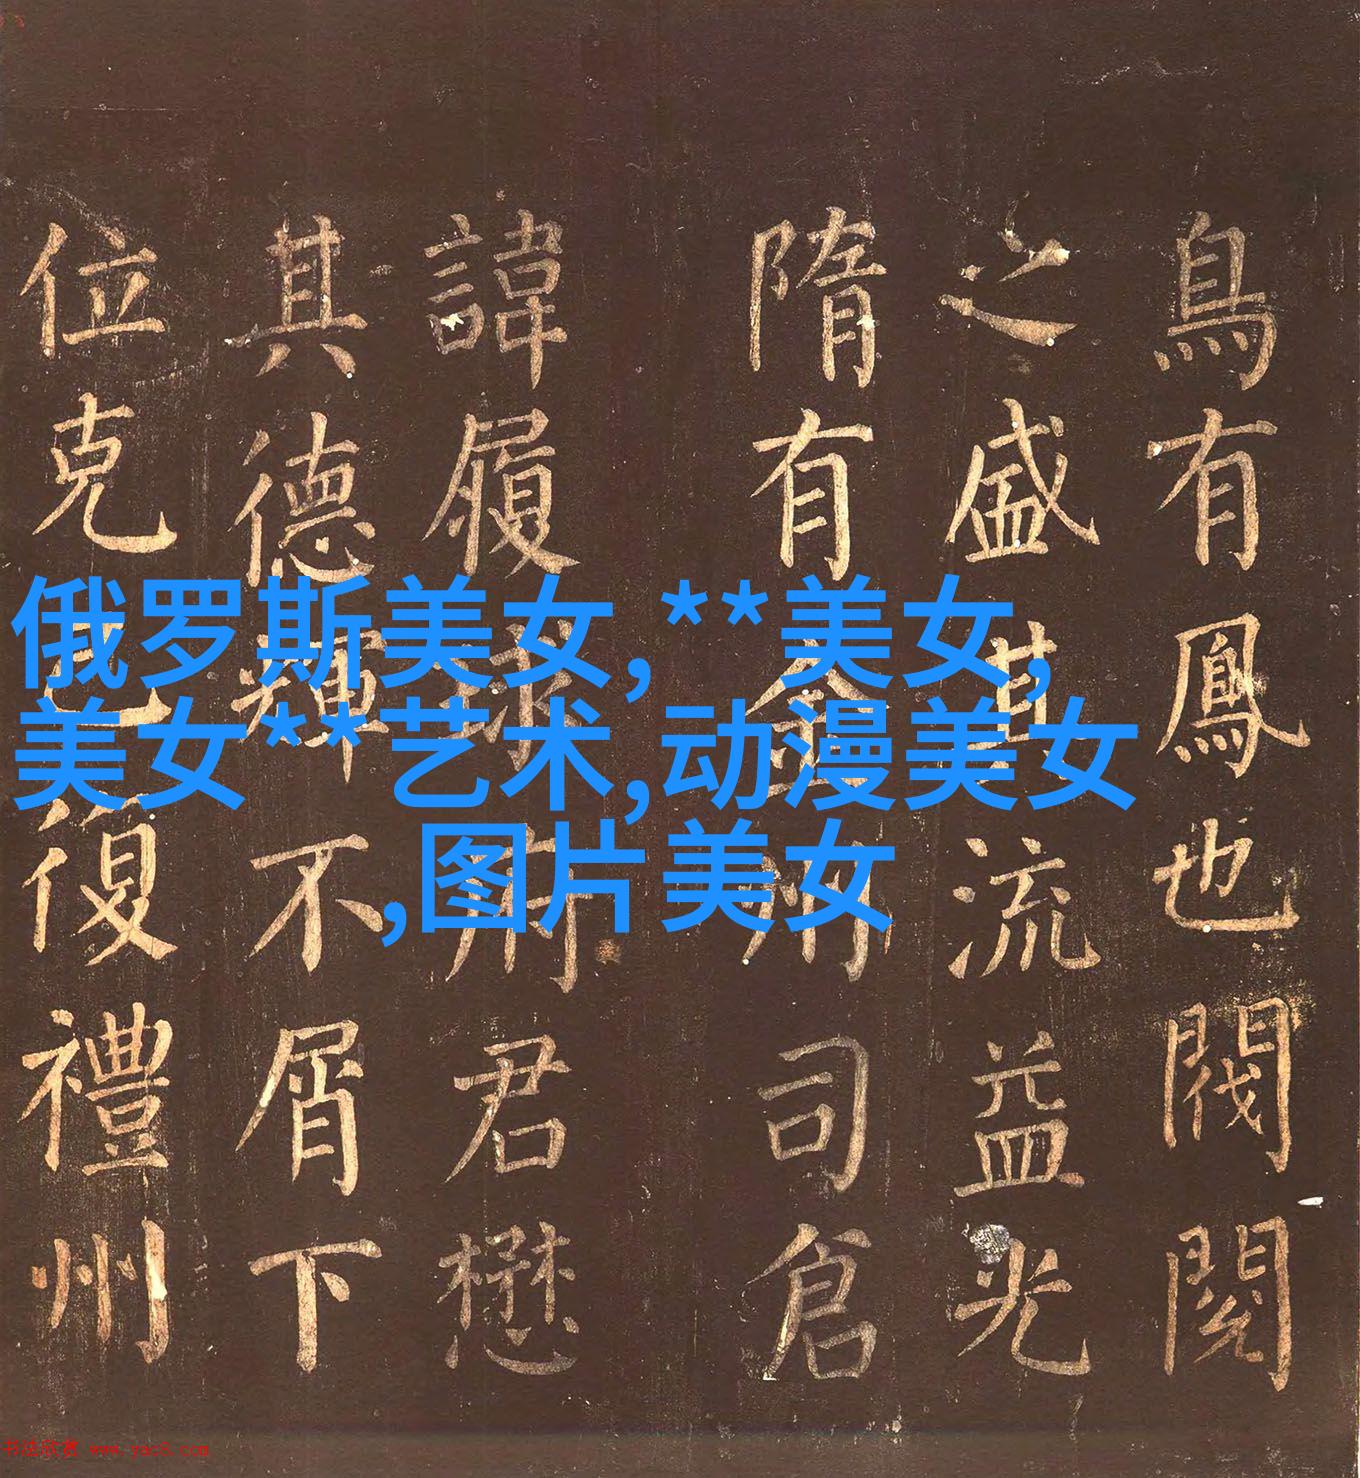 俄罗斯美女,**美女,
美女**艺术,动漫美女
,图片美女
鳥有鳳也閥閱
之盛其流益光
隋有金州司倉
諱履君懋
其德輝不屑下
位克己復禮州
书法欣赏 www.yac8.com